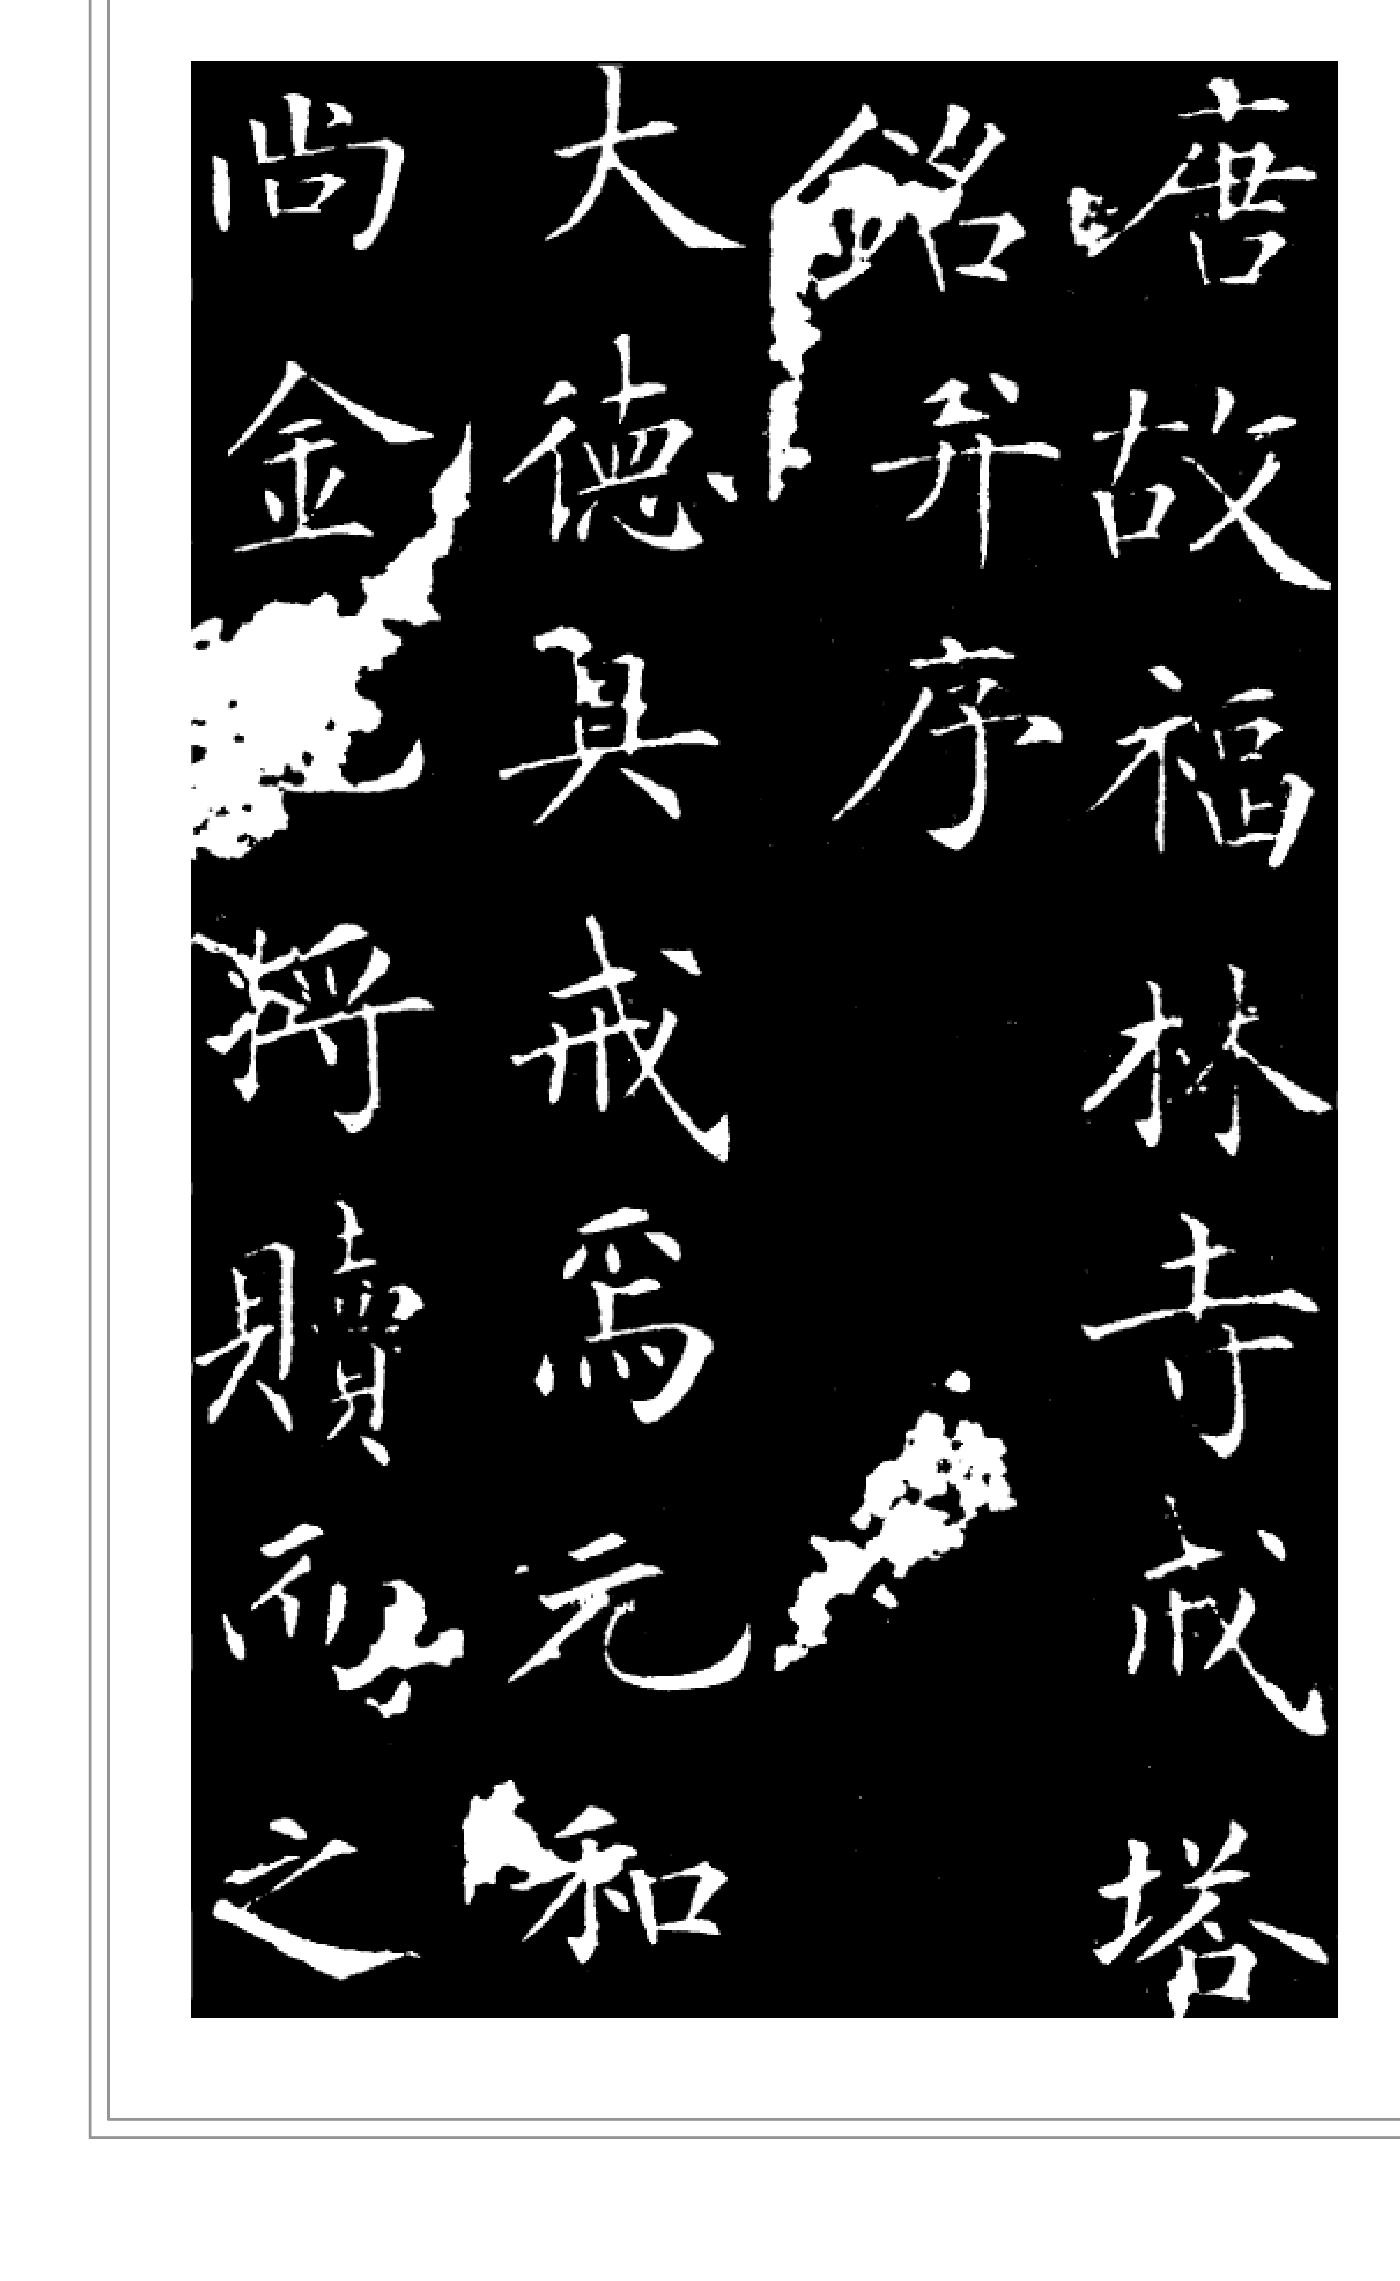 唐故福林寺戒塔
銘并序
大德具戒爲元和
尚金將贖而之